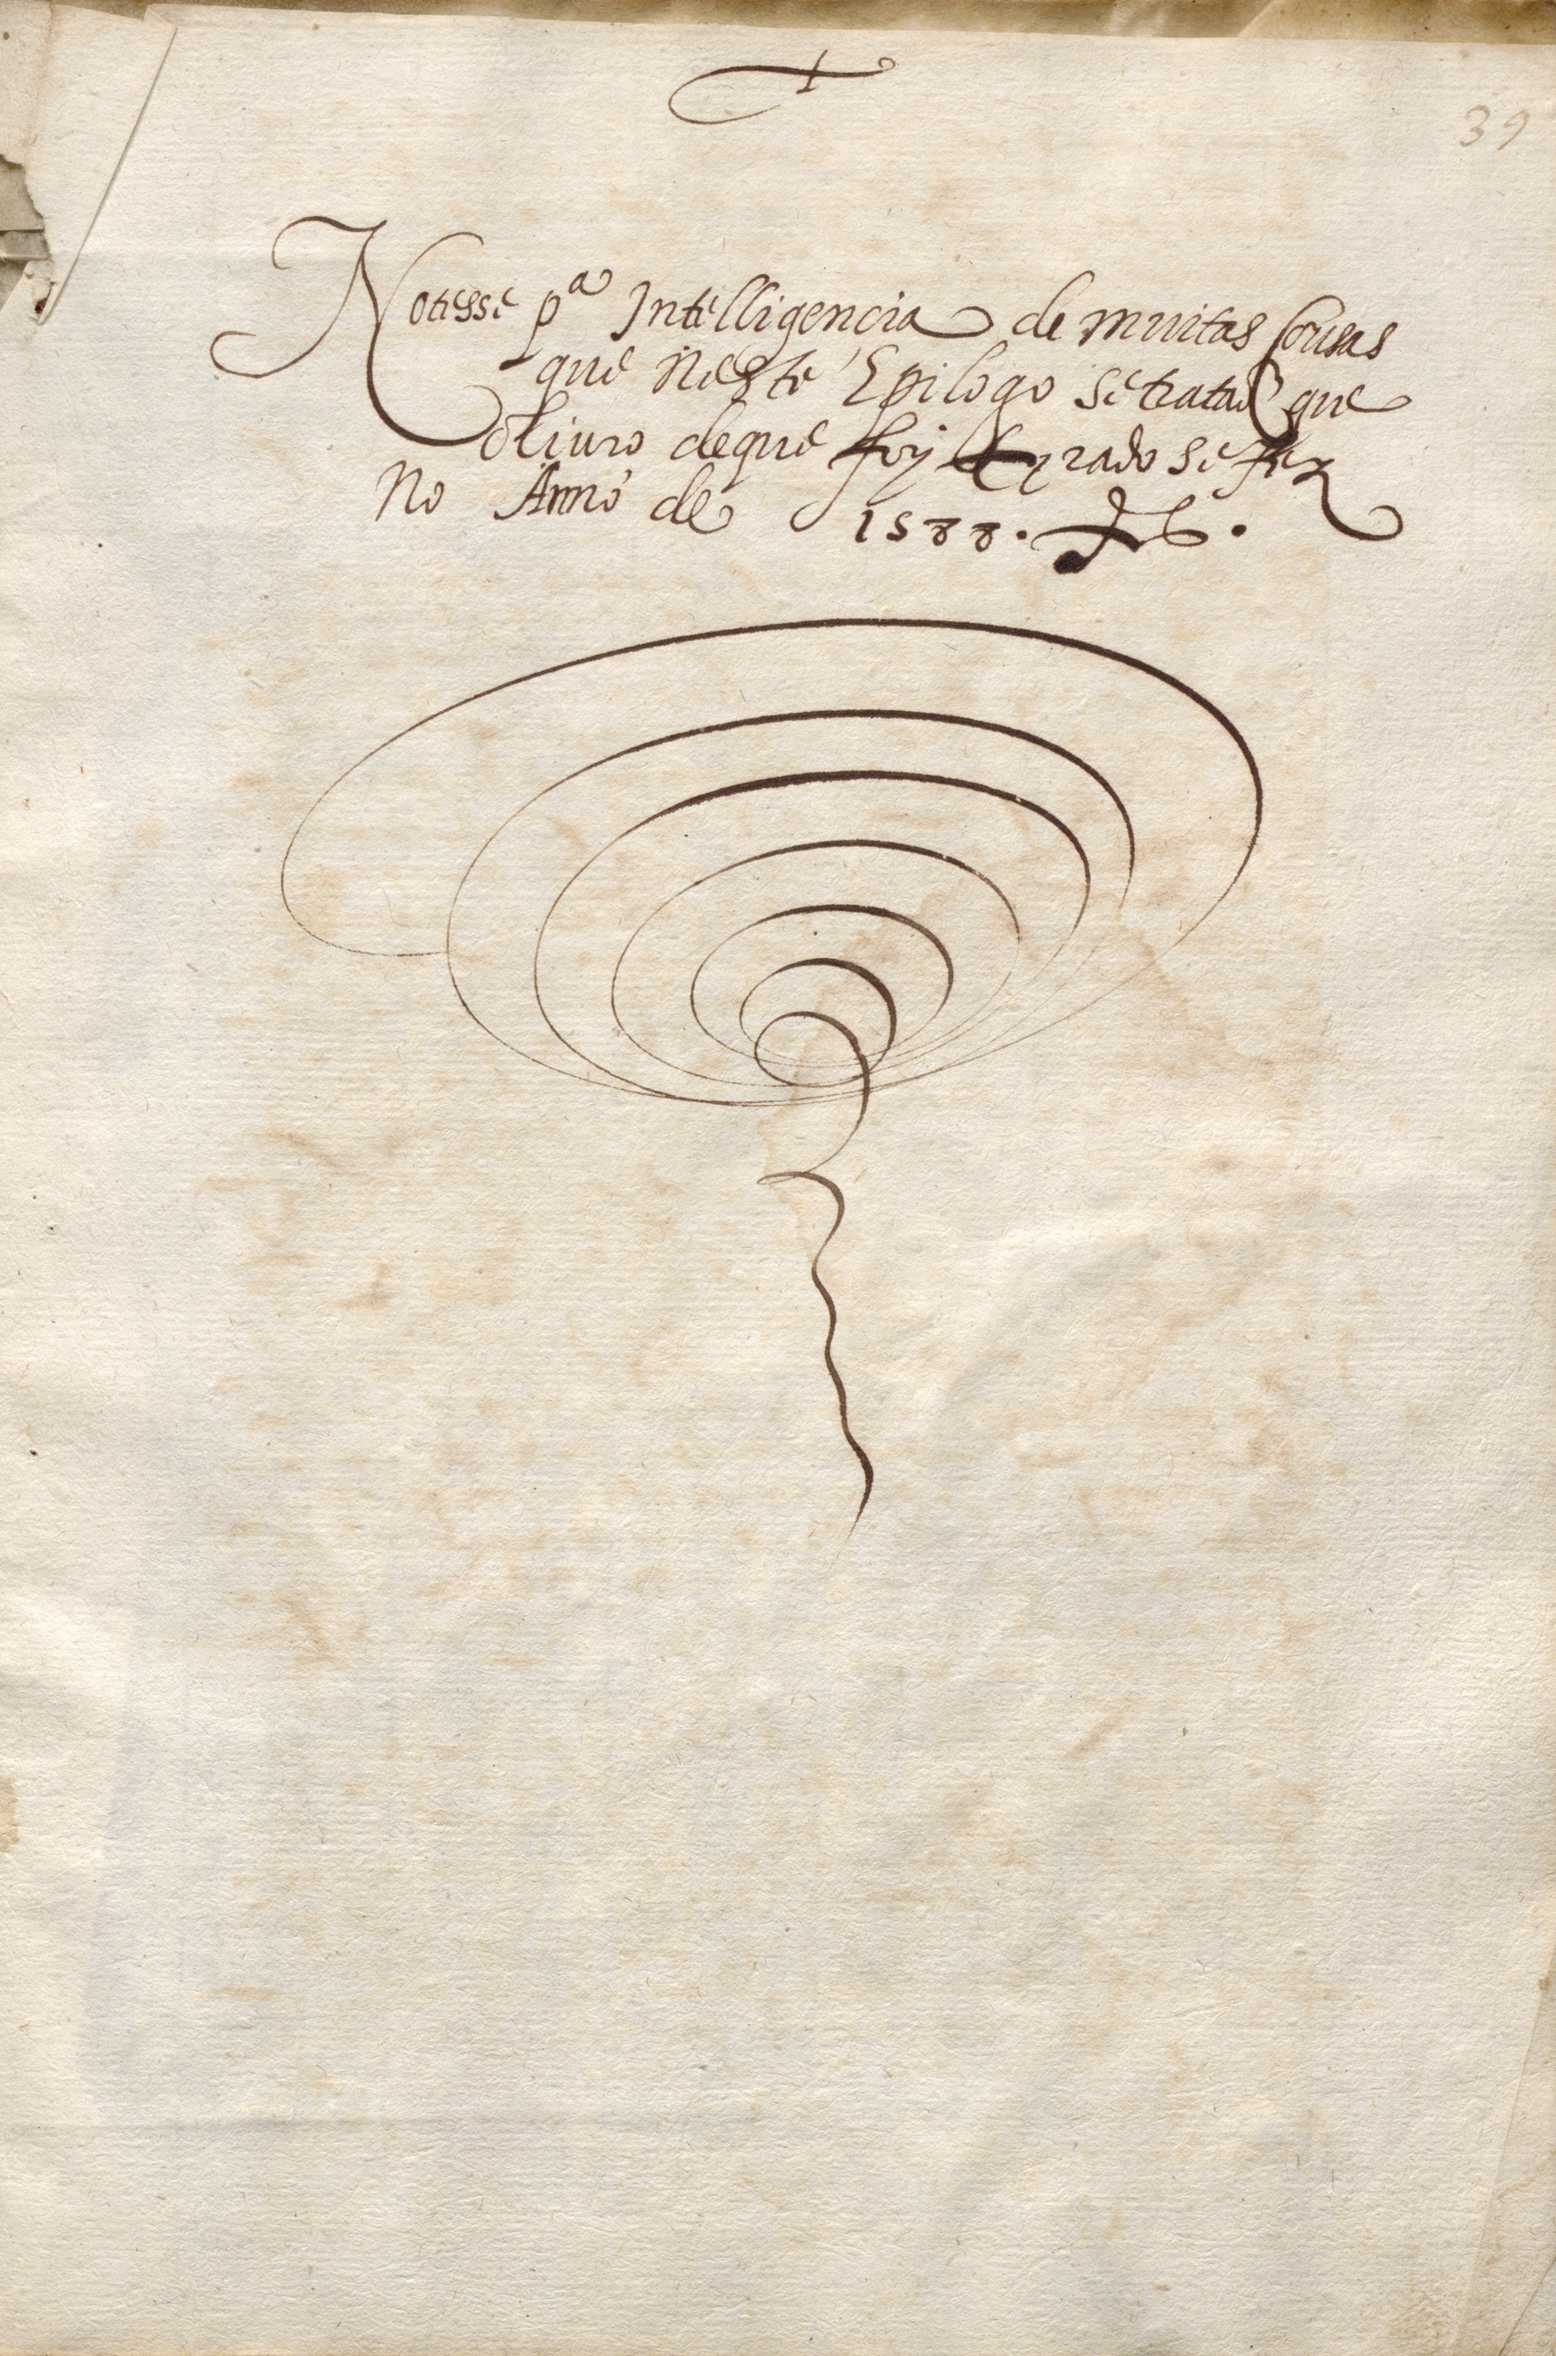 39
Notesse pª Intelligencia de muitas Cousas
que neste Epilogo se tratão que
o liuro de que foy tyrado se fez
no Anno de 1588.